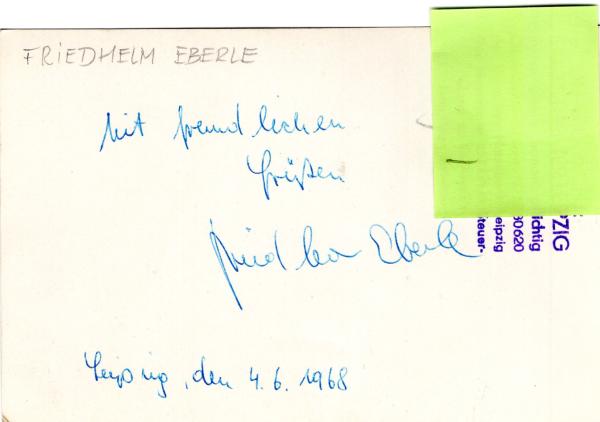 FRIEDHELM EBERLE
Mit freundlichen
Grüßen
Friedhelm Eberle
Leipzig, den 4.6.1968
ZIG
ichtig
00620
eipzig
teuer-